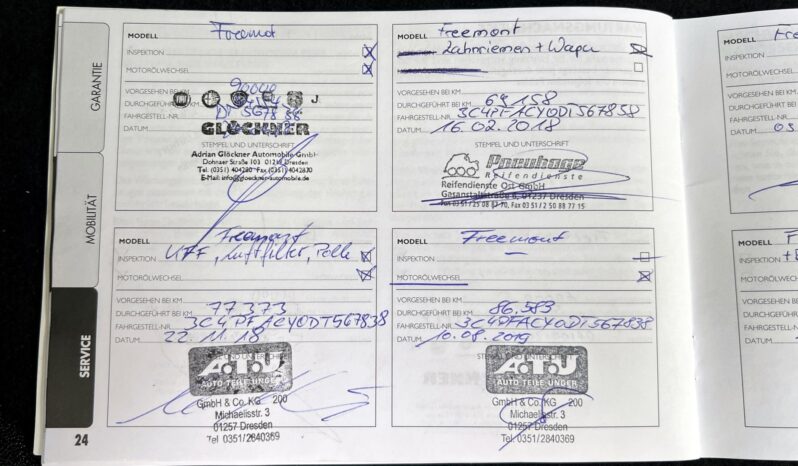 GARANTIE
MOBILITÄT
SERVICE
24
MODELL Freemont
INSPEKTION
MOTORÖLWECHSEL
VORGESEHEN BEI KM 90000
DURCHGEFÜHRT BEI KM
FAHRGESTELL-NR.
DATUM
GLÖCKNER
STEMPEL UND UNTERSCHRIFT
Adrian Glöckner Automobile GmbH
Dohnaer Straße 103 01219 Dresden
Tel. (0351) 404280 Fax (0351) 4042830
E-Mail: info@gloeckner-automobile.de
MODELL Freemont
INSPEKTION Zahnriemen + Wapu
MOTORÖLWECHSEL
VORGESEHEN BEI KM
DURCHGEFÜHRT BEI KM 69 158
FAHRGESTELL-NR. 3C4PFACY0DT567838
DATUM 16.02.2018
STEMPEL UND UNTERSCHRIFT
Pneuhage
Reifendienste
Reifendienste Ost GmbH
Gasanstaltstraße 6, 01237 Dresden
Fon 03 51/25 08 87-70, Fax 03 51/2 50 88 77 15
MODELL Freemont
INSPEKTION KFF, Luftfilter, Polle
MOTORÖLWECHSEL
VORGESEHEN BEI KM
DURCHGEFÜHRT BEI KM 77 373
FAHRGESTELL-NR. 3C4PFACY0DT567838
DATUM 22.11.18
A.T.U
AUTO-TEILE-UNGER
GmbH & Co. KG 200
Michaelisstr. 3
01257 Dresden
Tel. 0351/2840369
MODELL Freemont
INSPEKTION —
MOTORÖLWECHSEL
VORGESEHEN BEI KM
DURCHGEFÜHRT BEI KM 86.583
FAHRGESTELL-NR. 3C4PFACY0DT567838
DATUM 10.08.2019
A.T.U
AUTO-TEILE-UNGER
GmbH & Co. KG 200
Michaelisstr. 3
01257 Dresden
Tel. 0351/2840369
MODELL
INSPEKTION
MOTORÖLWECHSEL
VORGESEHEN BEI KM
DURCHGEFÜHRT BEI
FAHRGESTELL-NR.
DATUM
MODELL
INSPEKTION
MOTORÖLWECHSEL
VORGESEHEN BEI
DURCHGEFÜHRT
FAHRGESTELL-N
DATUM